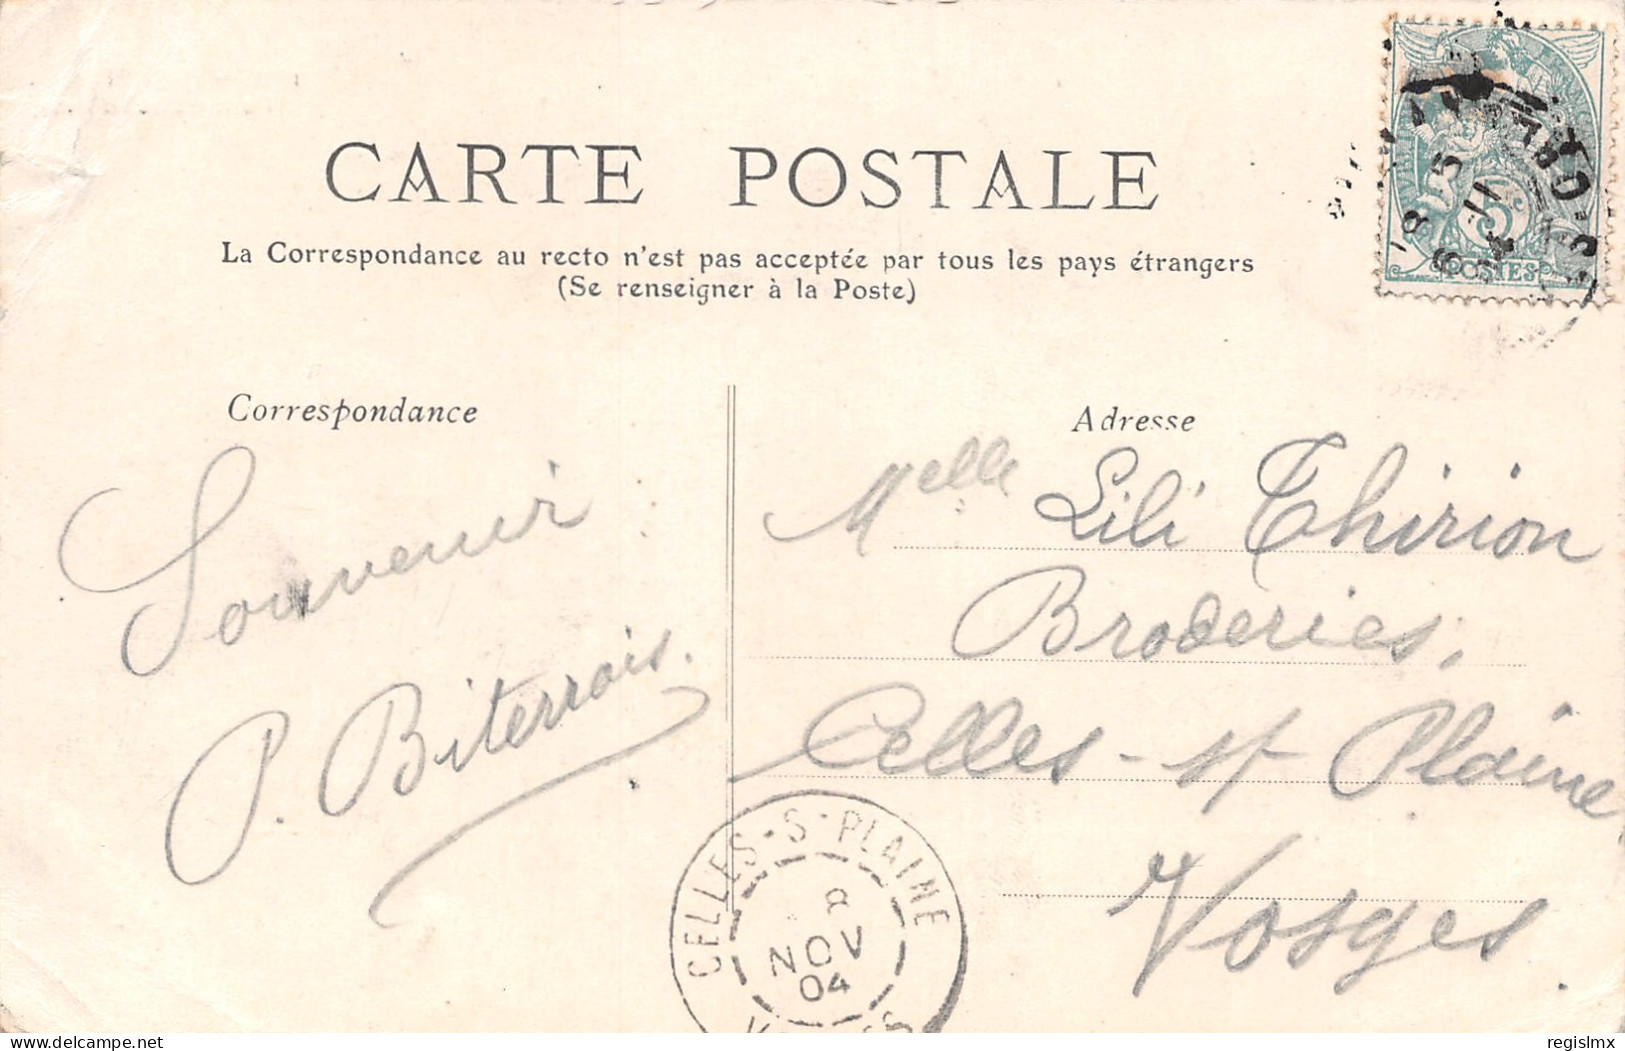 CARTE POSTALE
La Correspondance au recto n'est pas acceptée par tous les pays étrangers
(Se renseigner à la Poste)
Correspondance
Souvenir
P. Biterrois.
Adresse
Melle Lili Thirion
Broderies,
Celles-st Plaine
Vosges.
5
POSTES
18 15
5 11
CELLES-S-PLAINE
8
NOV
04
delcampe.net
regislmx